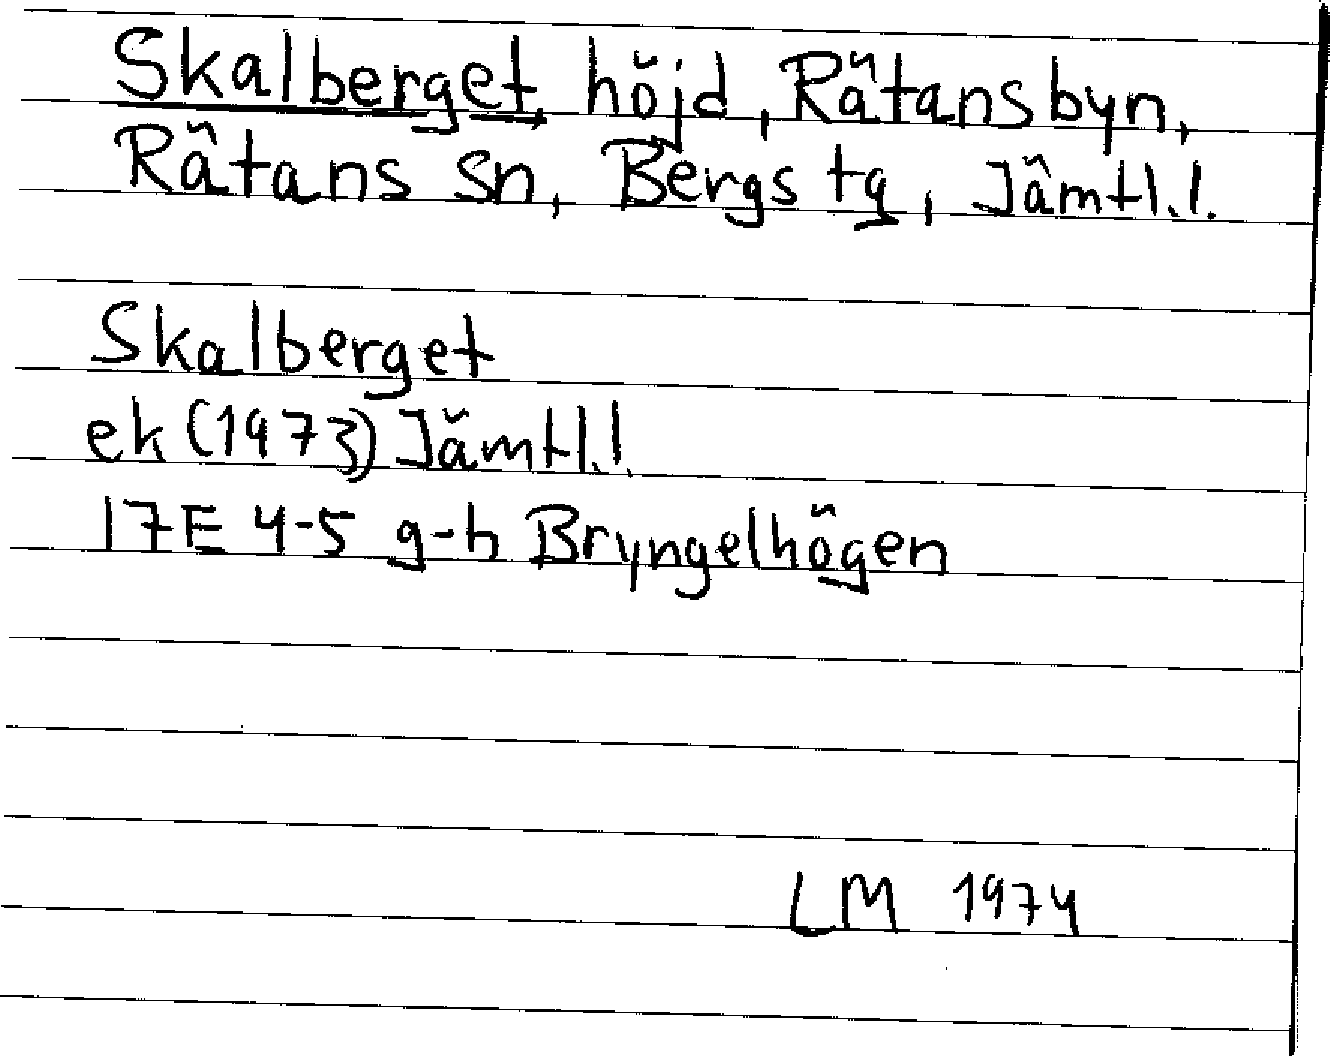 Skalberget, höjd, Rätansbyn,
Rätans sn, Bergs tg, Jämtl.l.
Skalberget
ek (1973) Jämtl.l.
17E 4-5 g-h Bryngelhögen
LM 1974